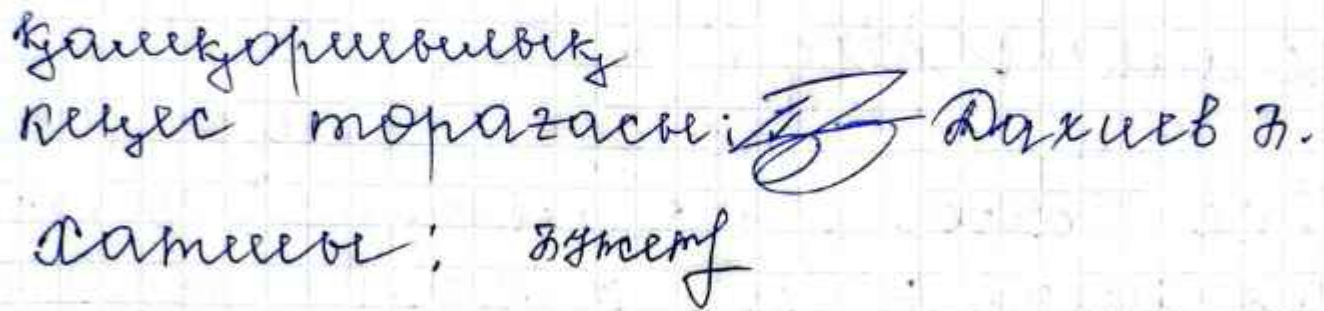 қамқоршылық
кеңес төрағасы: Дахиев Б.
Хатшы: